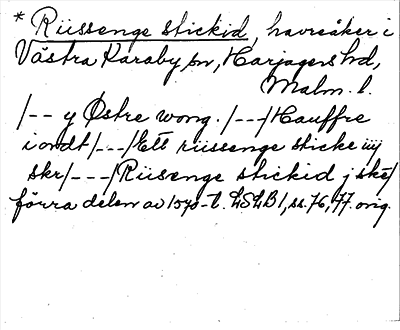 * Riissenge stickid, havreåker i
Västra Karaby sn, Harjagers hd,
Malm. l.
/-- y Østre wong. /---/Hauffre
iordt/---/Ett riissenge sticke iiij
skr/---/Riisenge stickid j ske/
förra delen av 1570-t. LSLB1, ss. 76, 77. orig.